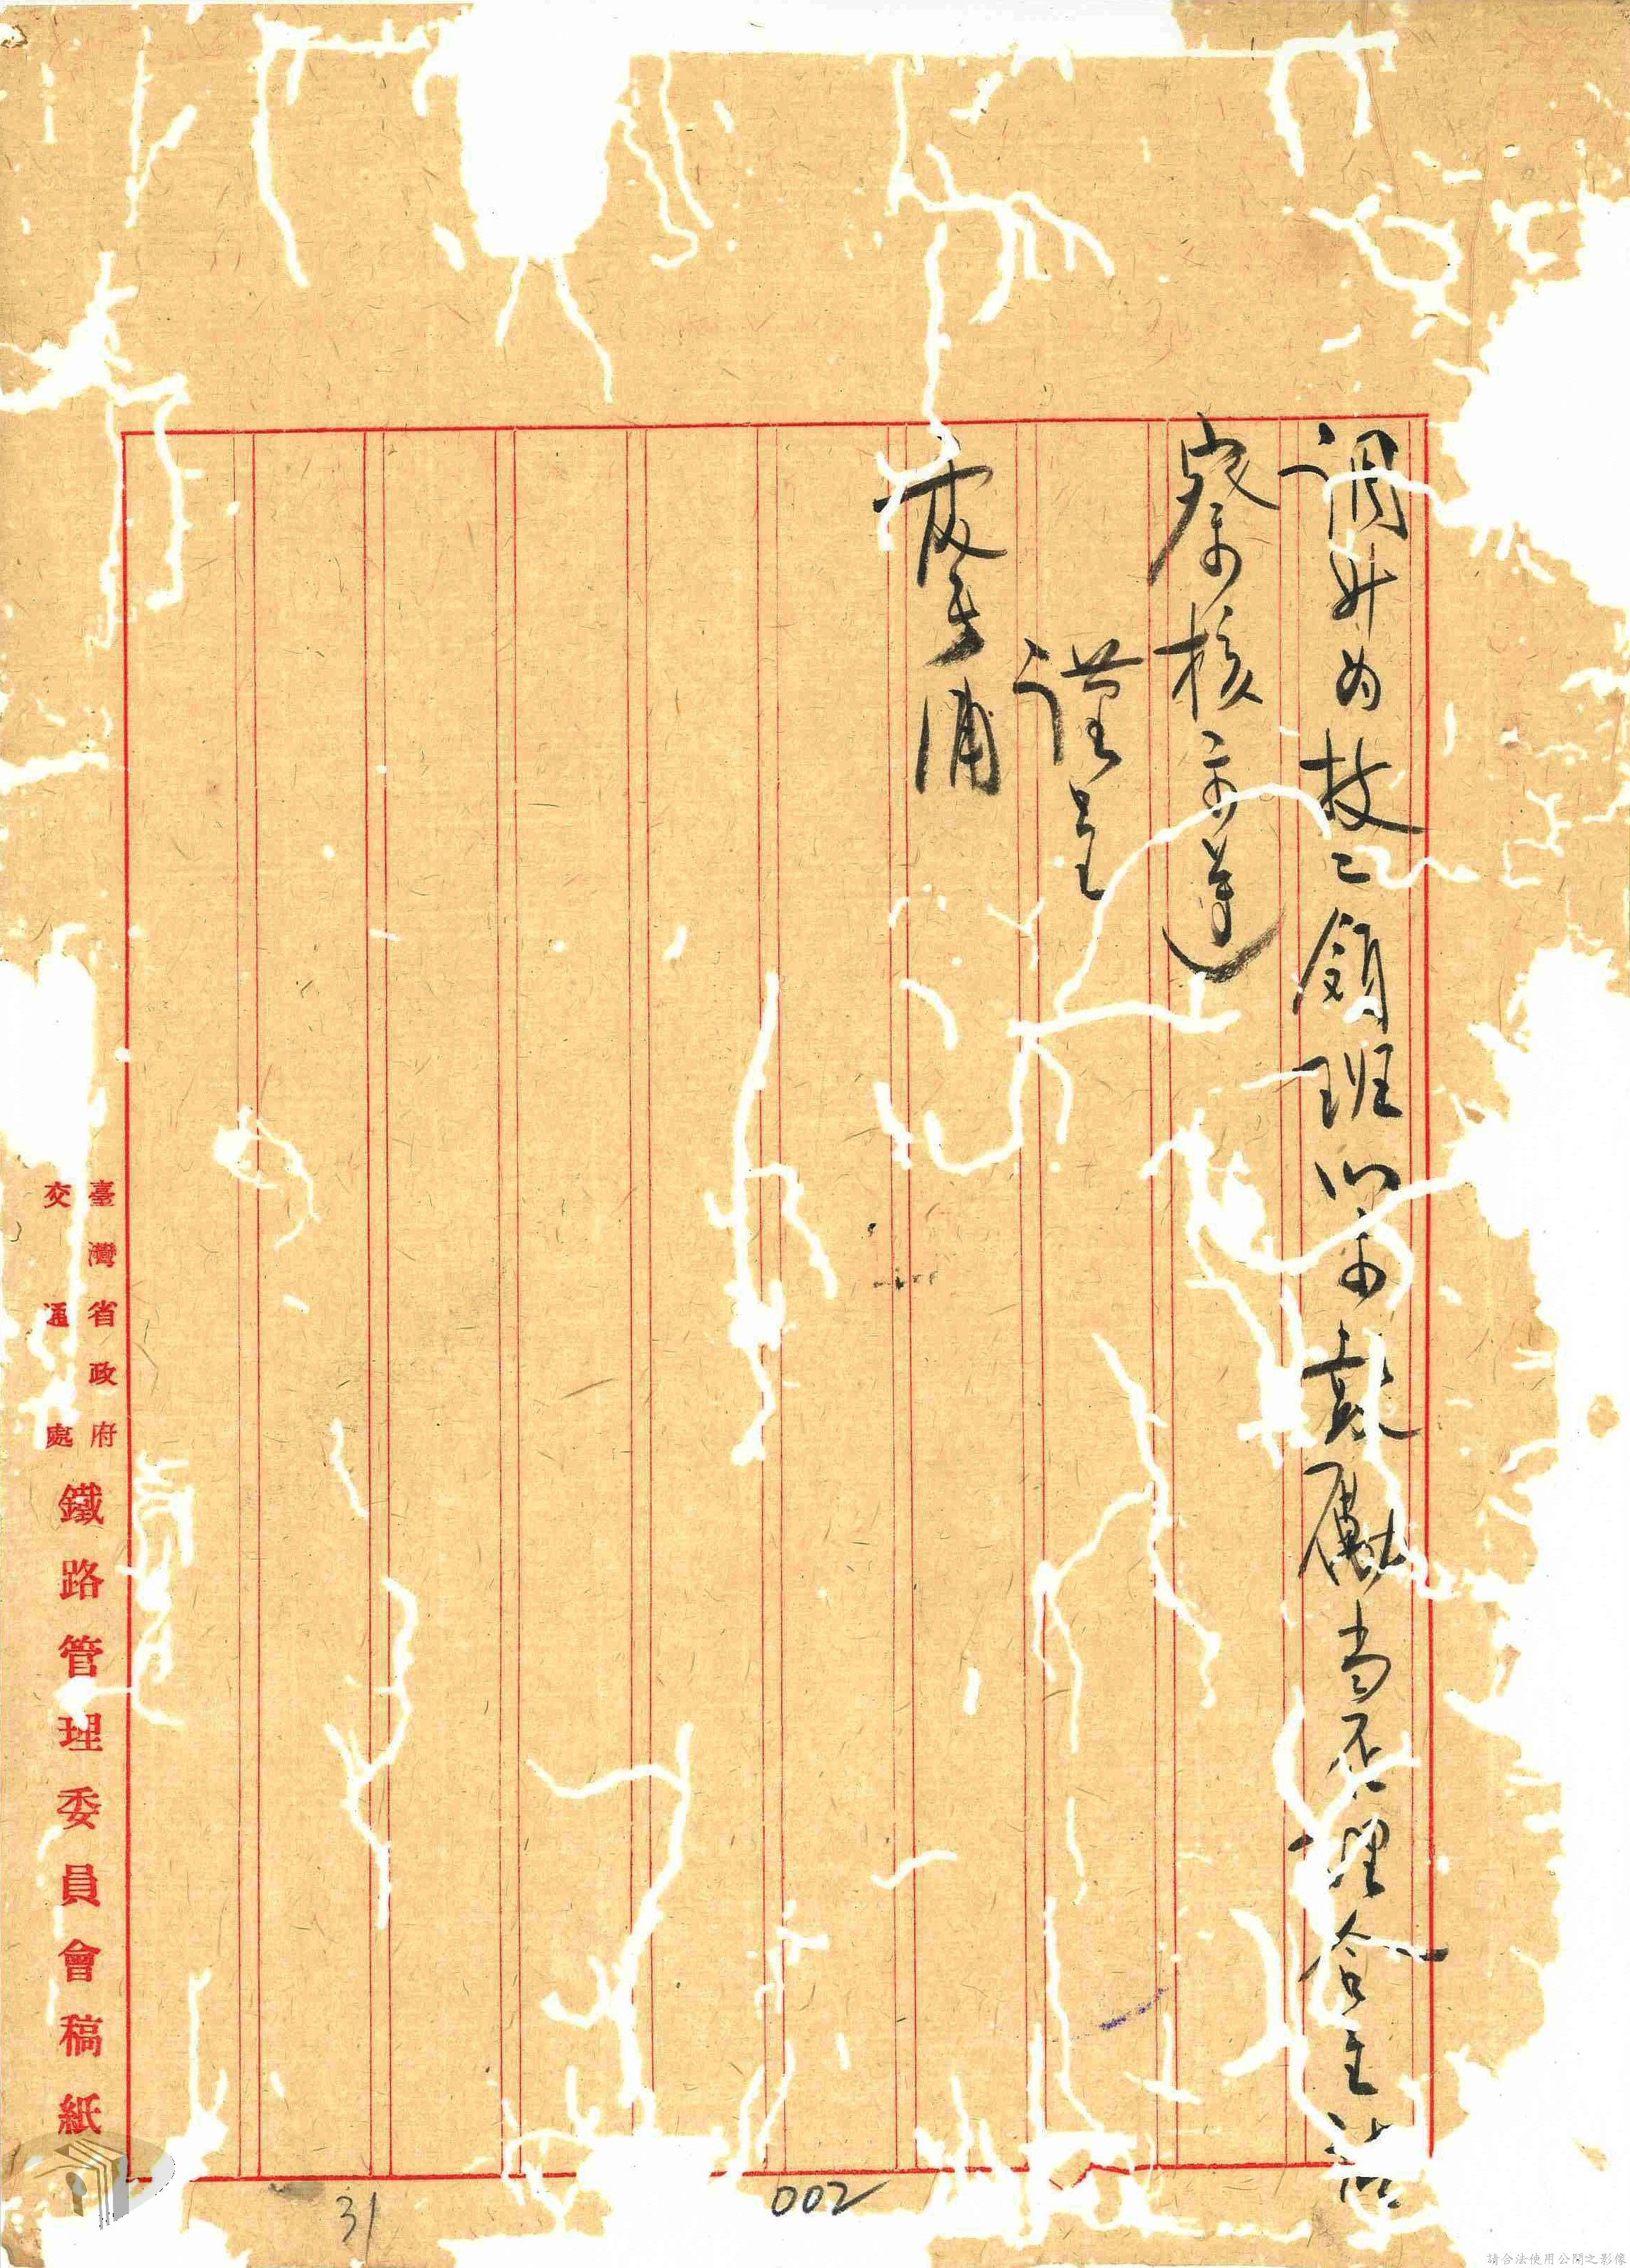 調升為技工領班以示鼓勵當否理合呈請
察核示遵
謹呈
處長浦
臺灣省政府
交通處
鐵路管理委員會稿紙
31
002
請合法使用公開之影像